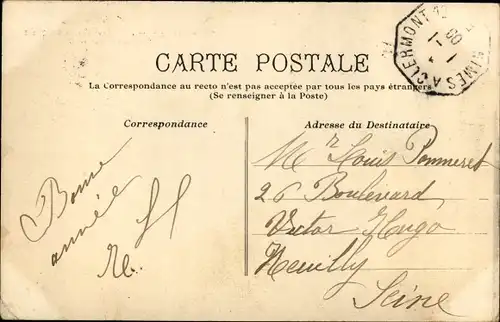 NIMES A CLERMONT
CARTE POSTALE
La Correspondance au recto n'est pas acceptée par tous les pays étrangers
(Se renseigner à la Poste)
Correspondance
Adresse du Destinataire
Bonne
année
Mr Louis Pommeret
26 Boulevard
Victor Hugo
Neuilly
Seine